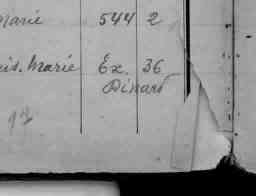 Marie 544 2
is. Marie Ex. 36
Dinard